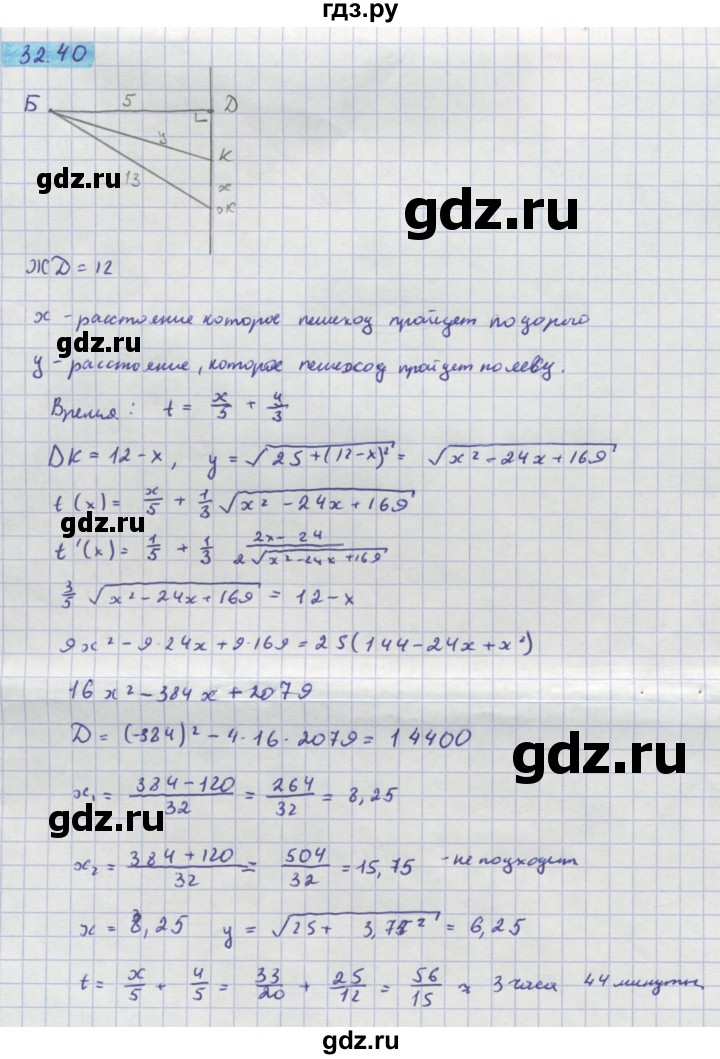 гдз.ру
32.40
Б 5 Д
у К
gdz.ru 13 х gdz.ru
Ж
ЖД = 12
х - расстояние которое пешеход пройдет по дороге
gdz.ru
у - расстояние, которое пешеход пройдет по леву.
Время: t = x/5 + y/3
DK = 12 - x, y = √(25 + (12 - x)²) = √(x² - 24x + 169)
t(x) = x/5 + 1/3 √(x² - 24x + 169)
t'(x) = 1/5 + 1/3 (2x - 24)/(2√(x² - 24x + 169))
3/5 √(x² - 24x + 169) = 12 - x
9x² - 9·24x + 9·169 = 25(144 - 24x + x²)
16x² - 384x + 2079
D = (-384)² - 4·16·2079 = 14400
gdz.ru
x₁ = (384 - 120)/32 = 264/32 = 8,25
gdz.ru
x₂ = (384 + 120)/32 = 504/32 = 15,75 - не подходит
x = 8,25 y = √(25 + 3,75²) = 6,25
t = x/5 + y/5 = 33/20 + 25/12 = 56/15 ≈ 3 часа 44 минуты
gdz.ru